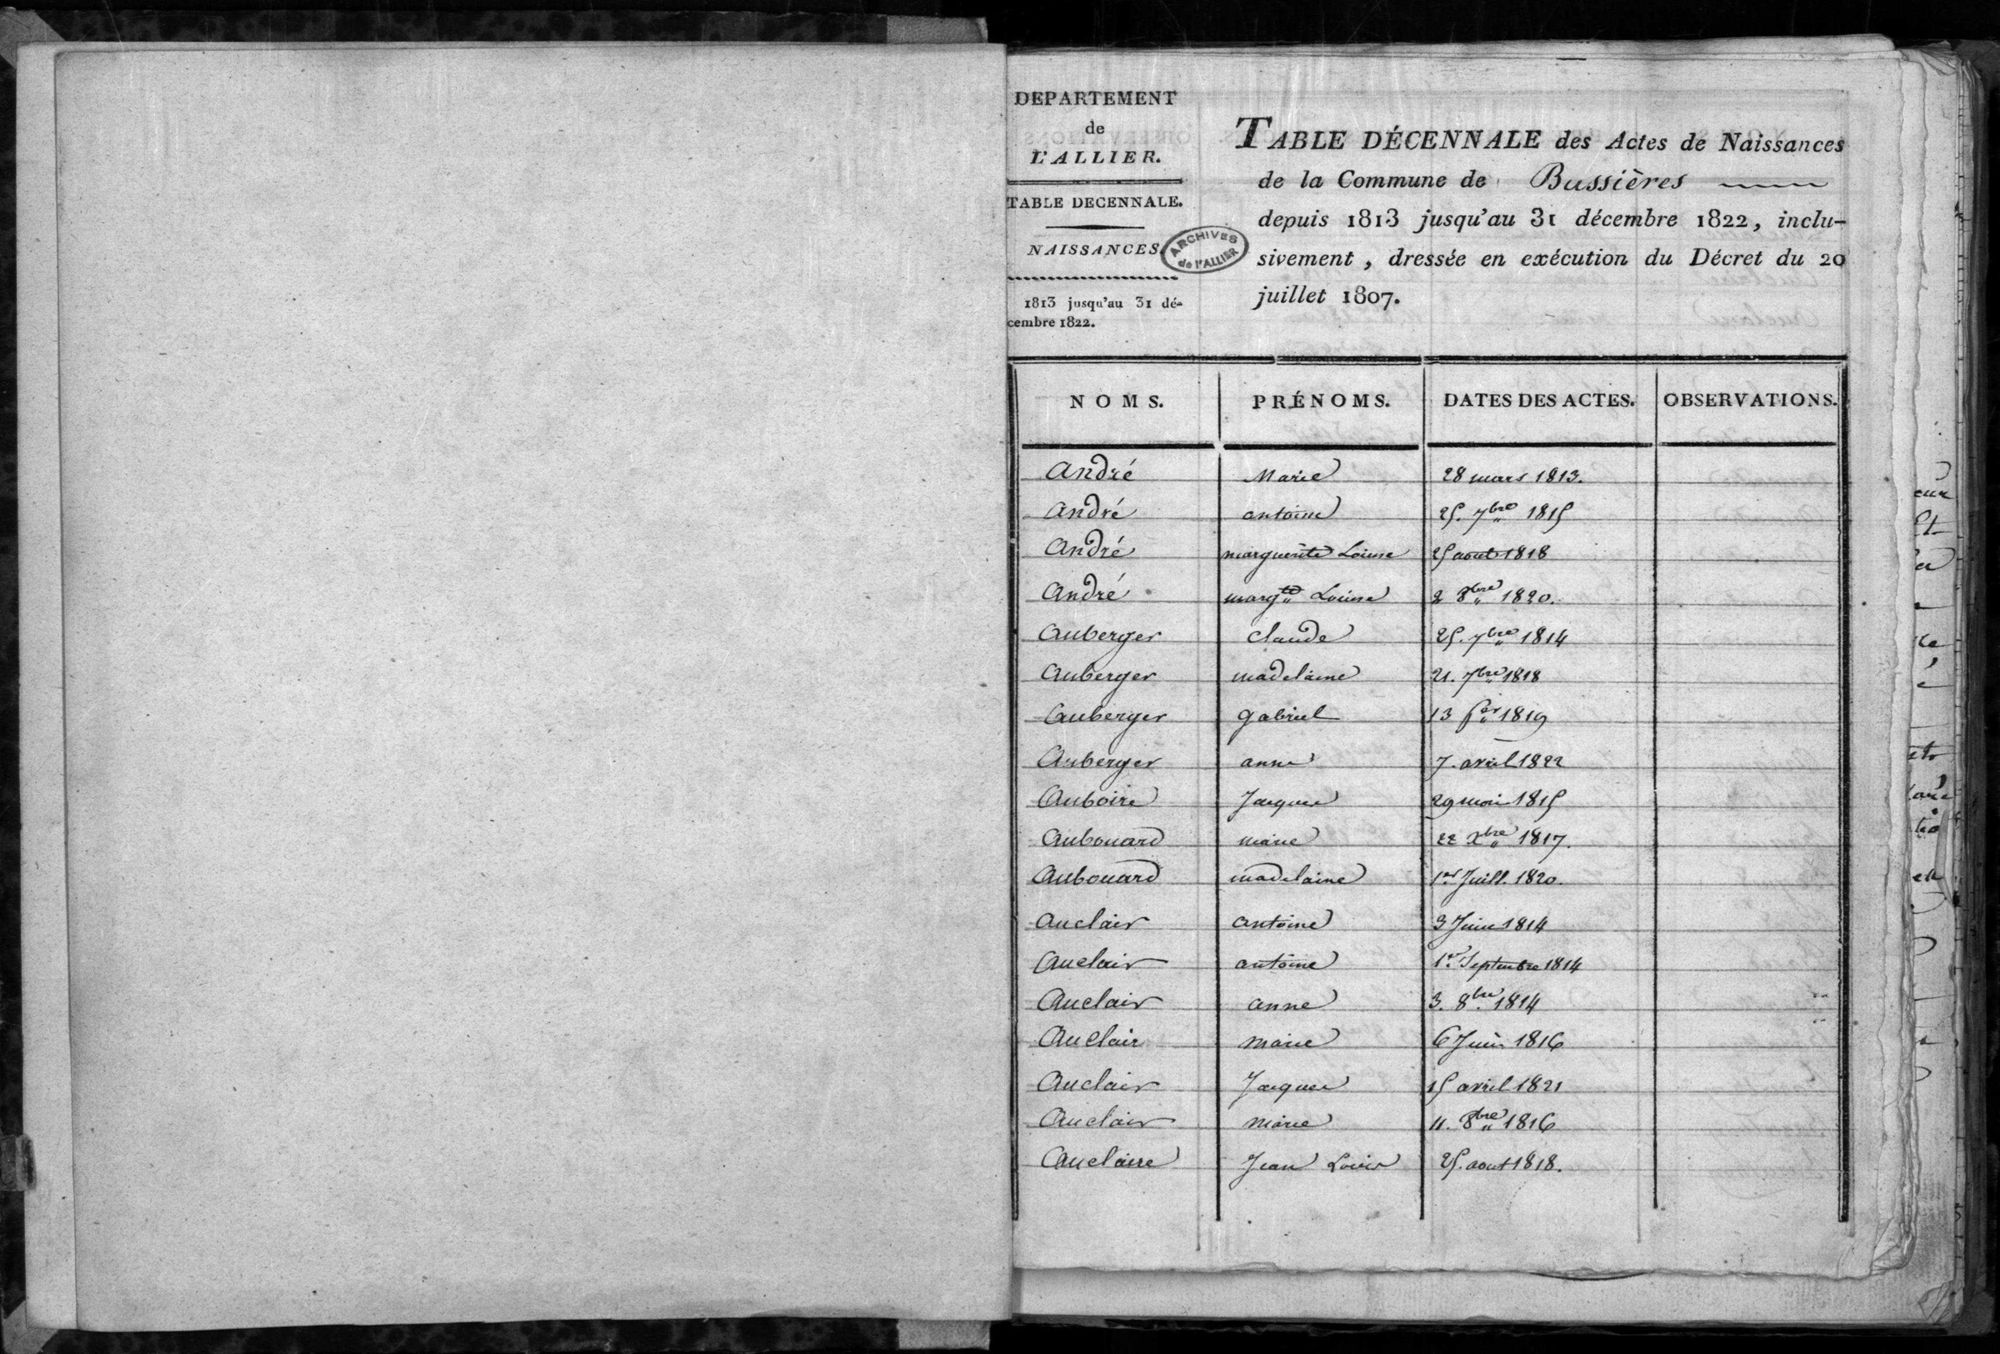 DEPARTEMENT
de
L'ALLIER.
TABLE DECENNALE.
NAISSANCES.
1813 jusqu'au 31 dé-
cembre 1822.
ARCHIVES
de l'ALLIER
TABLE DÉCENNALE des Actes de Naissances
de la Commune de Bussières
depuis 1813 jusqu'au 31 décembre 1822, inclu-
sivement, dressée en exécution du Décret du 20
juillet 1807.
NOMS. PRÉNOMS. DATES DES ACTES. OBSERVATIONS.
André Marie 28 mars 1813.
André antoine 25. 7bre 1815
André marguerite Louise 25 aout 1818
André margte Louise 2 8bre 1820.
Auberger claude 25. 7bre 1814
Auberger madelaine 21. 7bre 1818
Auberger gabriel 13 fer 1819
Auberger anne 7. avril 1822
Auboire Jacques 29 mai 1815
Aubouard marie 22 Xbre 1817.
Aubouard madelaine 1er Juill. 1820.
Auclair antoine 3 Juin 1814
Auclair antoine 1er Septembre 1814
Auclair anne 3. 8bre 1814
Auclair marie 6 Juin 1816
Auclair Jacques 15 avril 1821
Auclair marie 11. 8bre 1816
Auclaire Jean Louis 25. aout 1818.